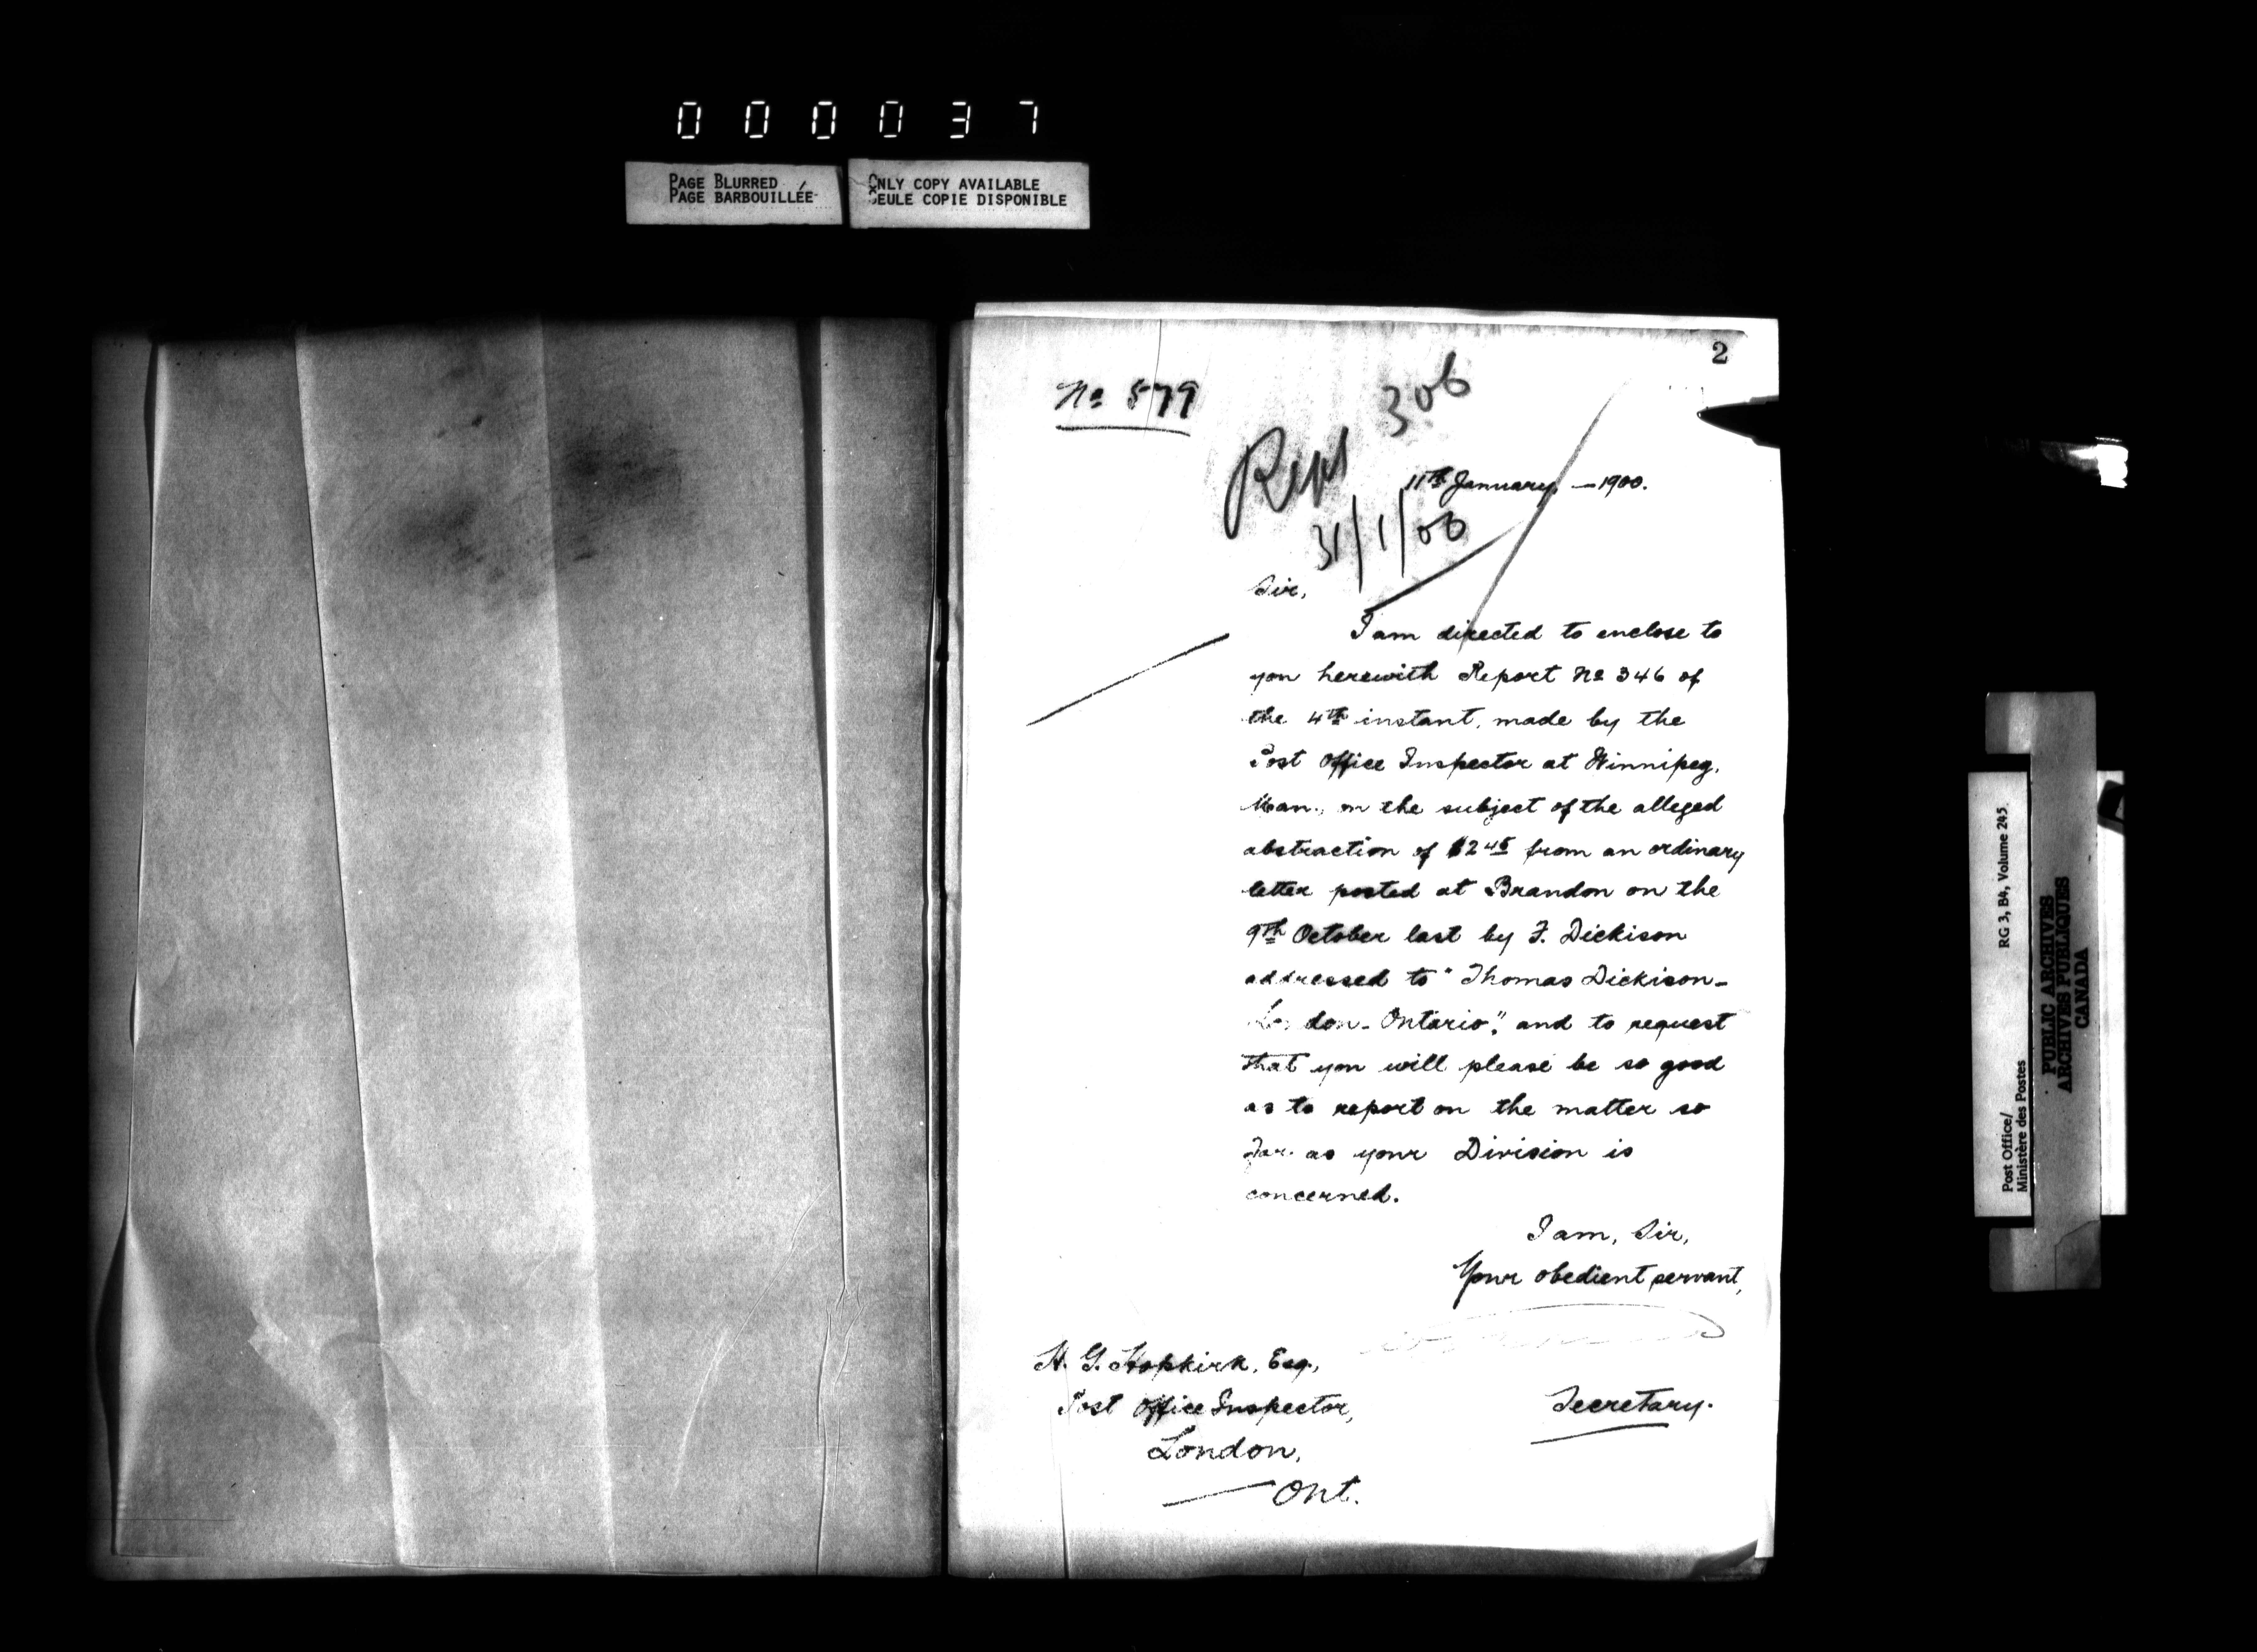 000037
PAGE BLURRED
PAGE BARBOUILLÉE
ONLY COPY AVAILABLE
SEULE COPIE DISPONIBLE
2
No 579
306
11th January, — 1900.
31/1/00
Sir,
I am directed to enclose to
you herewith Report No 346 of
the 4th instant, made by the
Post Office Inspector at Winnipeg,
Man., on the subject of the alleged
abstraction of $2 45 from an ordinary
letter posted at Brandon on the
9th October last by F. Dickison
addressed to "Thomas Dickison -
London - Ontario", and to request
that you will please be so good
as to report on the matter so
far as your Division is
concerned.
I am, Sir,
Your obedient servant,
Secretary.
H. G. Hopkirk, Esq.,
Post Office Inspector,
London,
— Ont.
Post Office/
Ministère des Postes
RG 3, B4, Volume 245
PUBLIC ARCHIVES
ARCHIVES PUBLIQUES
CANADA